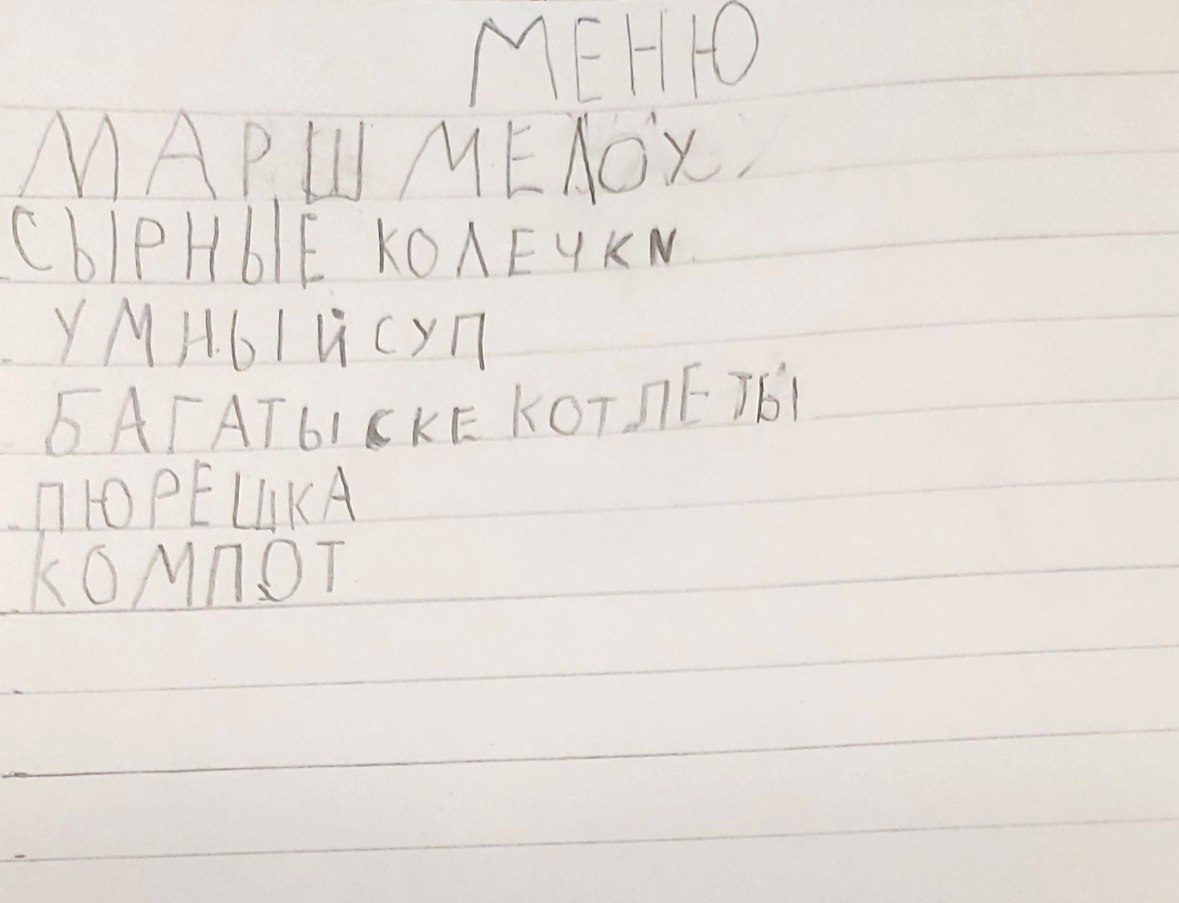 МЕНЮ
МАРШМЕЛОХ
СЫРНЫЕ КОЛЕЧКИ
УМНЫЙ СУП
БАГАТЫСКЕ КОТЛЕТЫ
ПЮРЕШКА
КОМПОТ